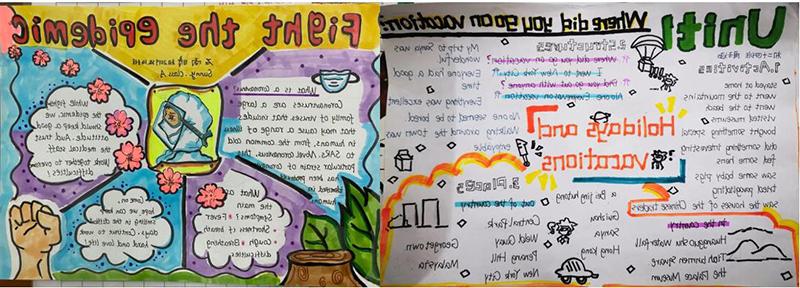 Fight the epidemic
Sunny. Class A
What is a Coronavirus?
Coronaviruses are a large
family of viruses that include
that may cause a range of
in humans, from the common cold
to SARS. Novel Coronavirus. This
particular strain of coronavirus
has not been previously
identified in
humans
While fighting
the epidemic, we
should keep good
attitudes. And trust
the medical staff.
Work together overcome
difficulties!
What
are the main
Symptoms
Fever
Shortness of breath
cough
Breathing
difficulties
Come on,
I hope we can
be sitting the during
city. Continue to work
hard and live life!
Unit1
Where did you go on vacation?
1. Activities
stayed at home
went to the mountains
went to the beach
visited museums
bought anything special
did something interesting
fed some hens
saw some baby pigs
tried paragliding
saw the houses of the Chinese traders
2. Structures
Where did you go on vacation?
I went to New York City.
Did you go out with anyone?
No, no one was here. Everyone was on vacation.
My trip to Sanya was
wonderful
Everyone had a good
time
Everything was excellent
No one seemed to be bored
Walking around the town was
enjoyable
Holidays and
vacations
3. Places
in the country
Huangguoshu Waterfall
Tian'anmen Square
the Palace Museum
Guizhou
Sanya
Hong Kong
a Beijing hutong
out of the country
Central Park
Weld Quay
Penang Hill
New York City
Georgetown
Malaysia